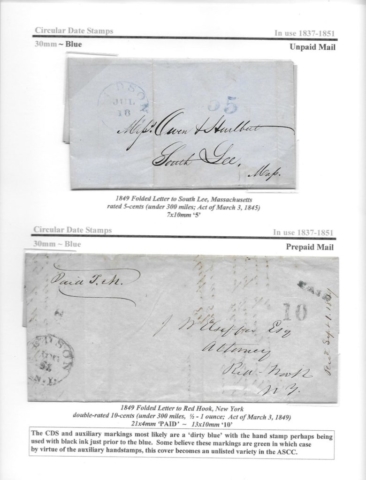 Circular Date Stamps In use 1837-1851
30mm – Blue Unpaid Mail
HUDSON
JUL
10
5 5
Messrs. Owen & Hurlbut
South Lee,
Mass.
1849 Folded Letter to South Lee, Massachusetts
rated 5-cents (under 300 miles; Act of March 3, 1845)
7x10mm '5'
Circular Date Stamps In use 1837-1851
30mm – Blue Prepaid Mail
Paid
PAID
10
Esq
Attorney
Red-Hook
N.Y.
HUDSON
N.Y.
1849 Folded Letter to Red Hook, New York
double-rated 10-cents (under 300 miles, ½ - 1 ounce; Act of March 3, 1849)
21x4mm 'PAID' ~ 13x10mm '10'
The CDS and auxiliary markings most likely are a 'dirty blue' with the hand stamp perhaps being
used with black ink just prior to the blue. Some believe these markings are green in which case
by virtue of the auxiliary handstamps, this cover becomes an unlisted variety in the ASCC.